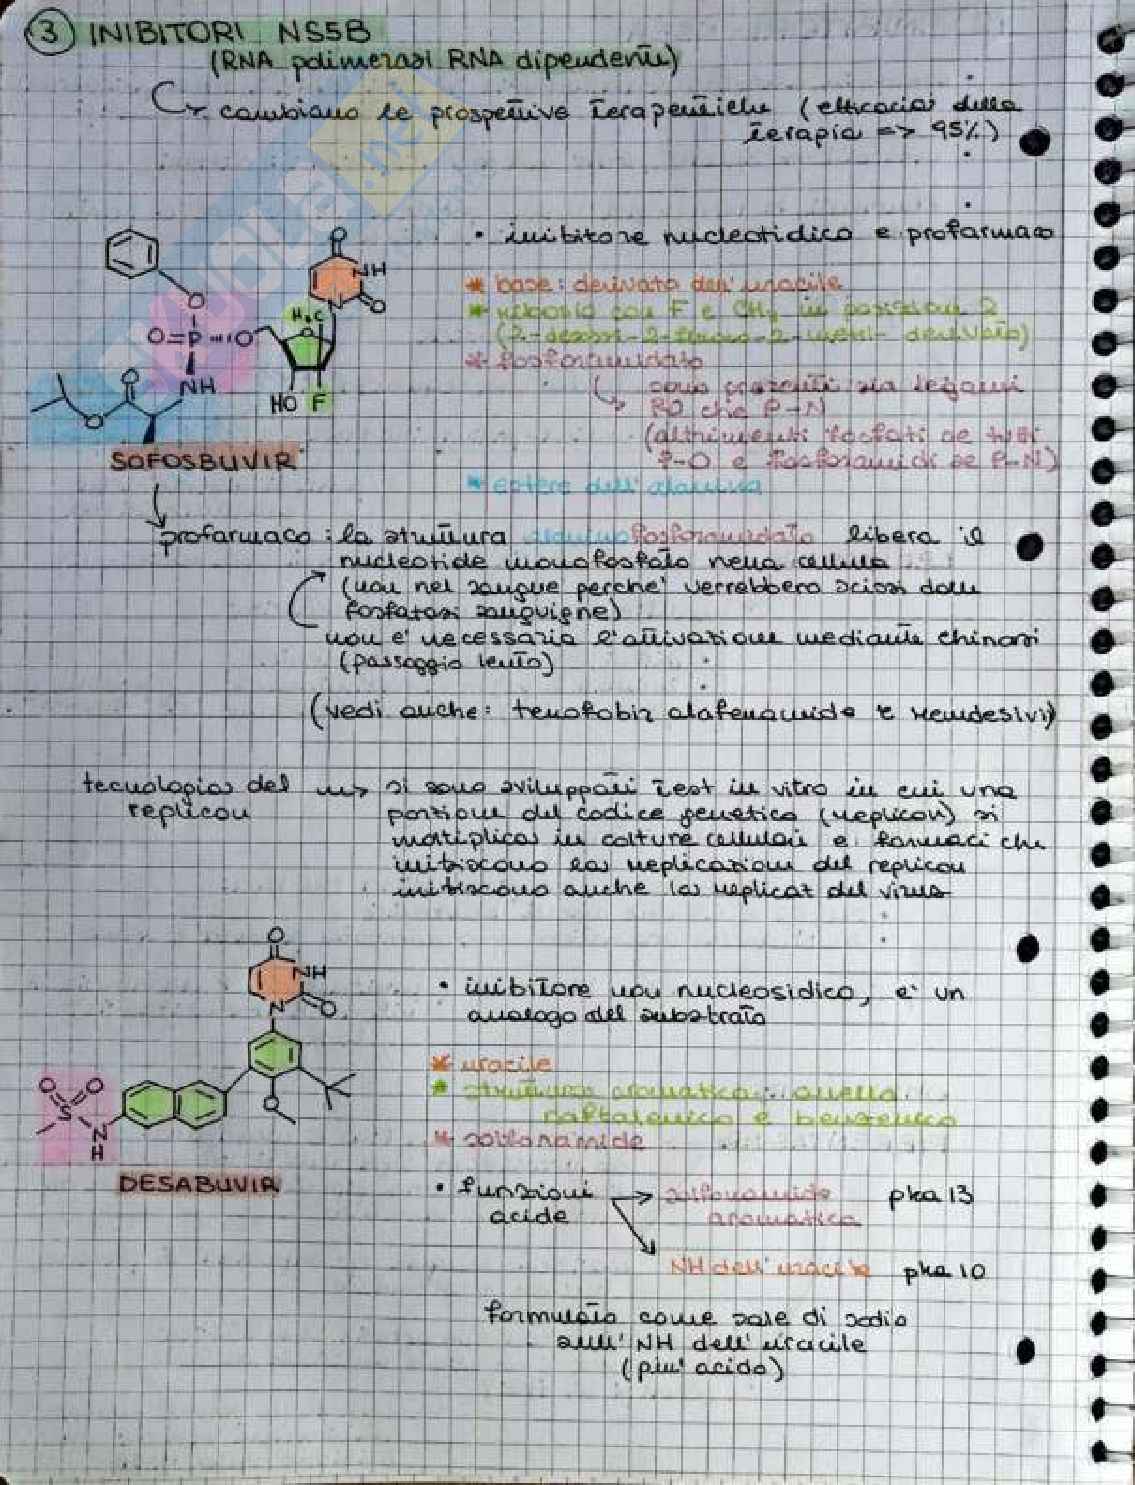 3 INIBITORI NS5B
(RNA polimerasi RNA dipendente)
cambiano le prospettive terapeutiche (efficacia della
terapia => 95%)
• inibitore nucleotidico e profarmaco
* base: derivato dell'uracile
* ribosio con F e CH3 in posizione 2
(2-deossi-2-fluoro-2-metil-derivato)
* fosforamidato
sono presenti sia legami
PO che P-N
(altrimenti fosfati se tutti
P-O e fosforamidi se P-N)
* estere dell'alanina
O
NH
O
N
H3C
O
O=P O
O
NH
O
O
HO F
SOFOSBUVIR
profarmaco: la struttura fosforamidato libera il
nucleotide monofosfato nella cellula
(non nel sangue perche' verrebbero scissi dalle
fosfatasi sanguigne)
non e' necessaria l'attivazione mediante chinasi
(passaggio lento)
(vedi anche: tenofobir alafenamide e remdesivir)
tecnologia del
replicon
si sono sviluppati test in vitro in cui una
porzione del codice genetico (replicon) si
moltiplica in colture cellulari e farmaci che
inibiscono la replicazione del replicon
inibiscono anche la replicat del virus
O
NH
N O
• inibitore non nucleosidico, e' un
analogo del substrato
* uracile
* struttura aromatica: quella
naftalenica e benzenica
* solfonamide
O O
S
N
H
O
DESABUVIR
• funzioni
acide
solfonamide pka 13
aromatica
NH dell'uracile pka 10
formulato come sale di sodio
sull'NH dell'uracile
(piu' acido)